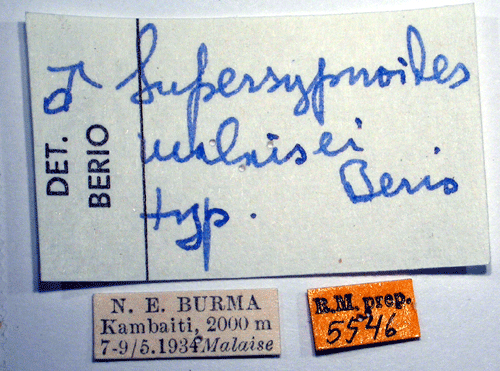 DET. BERIO
♂ Supersypnoides
malaisei
Berio
typ.
N. E. BURMA
Kambaiti, 2000 m
7-9/5.1934 Malaise
R.M. prep.
5546